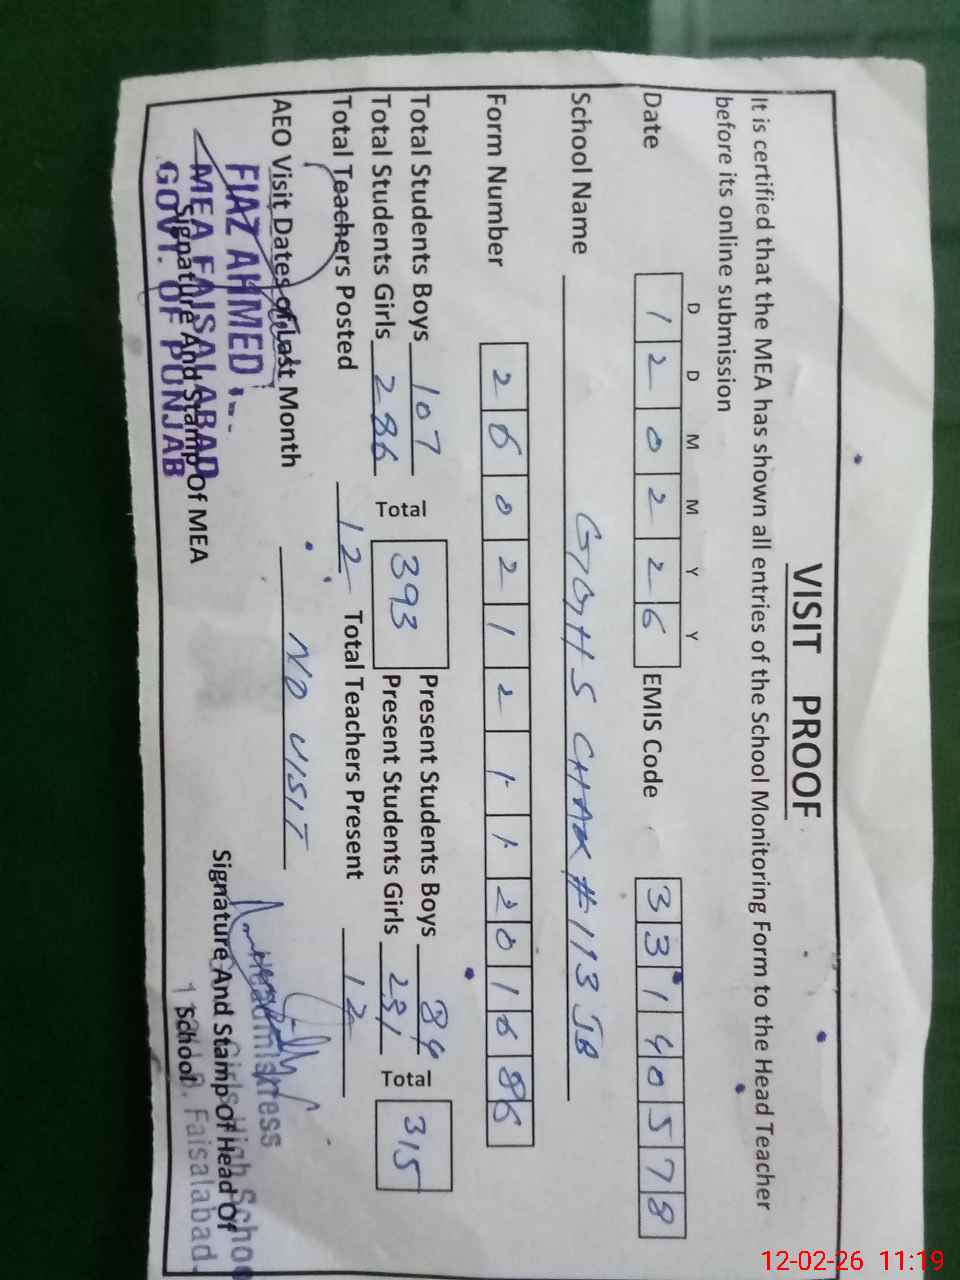 VISIT PROOF
It is certified that the MEA has shown all entries of the School Monitoring Form to the Head Teacher
before its online submission
D D M M Y Y
Date 1 2 0 2 2 6 EMIS Code 3 3 1 4 0 5 7 8
School Name GGHS CHAK # 113 JB
Form Number 2 6 0 2 1 2 1 1 2 0 1 6 86
Total Students Boys 107 Total 393 Present Students Boys 84 Total 315
Total Students Girls 286 Present Students Girls 231
Total Teachers Posted 12 Total Teachers Present 12
AEO Visit Dates of Last Month NO VISIT
FIAZ AHMED
MEA FAISALABAD
GOVT. OF PUNJAB
Signature And Stamp Of MEA
Headmistress
Girls High Schoo
Faisalabad
Signature And Stamp Of Head Of
School
12-02-26 11:19